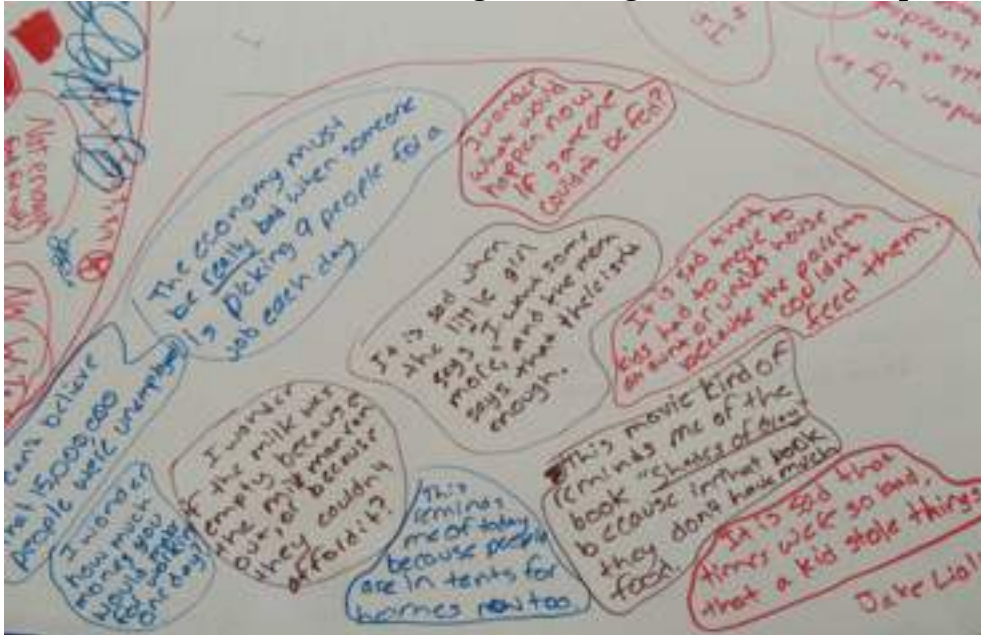 The economy must
be really bad when someone
is picking 9 people for a
job each day
I wonder
what would
happen now
if someone
couldn't be fed?
It is sad when
the little girl
says "I want some
more," and the mom
says that there isn't
enough.
It is sad that
kids had to move to
an aunt or uncles house
because the parents
couldn't
feed them.
believe
that 15,000,000
people were unemployed
I wonder
how much
money you
would get
for working
one day?
I wonder
if the milk was
empty because
the milk man ran
out, or because
they couldn't
afford it?
This
reminds
me of today
because people
are in tents for
homes now too
This movie kind of
reminds me of the
book "Shades of Gray"
because in that book
they don't have much
food.
It is sad that
times were so bad,
that a kid stole things
Jake
Not enough